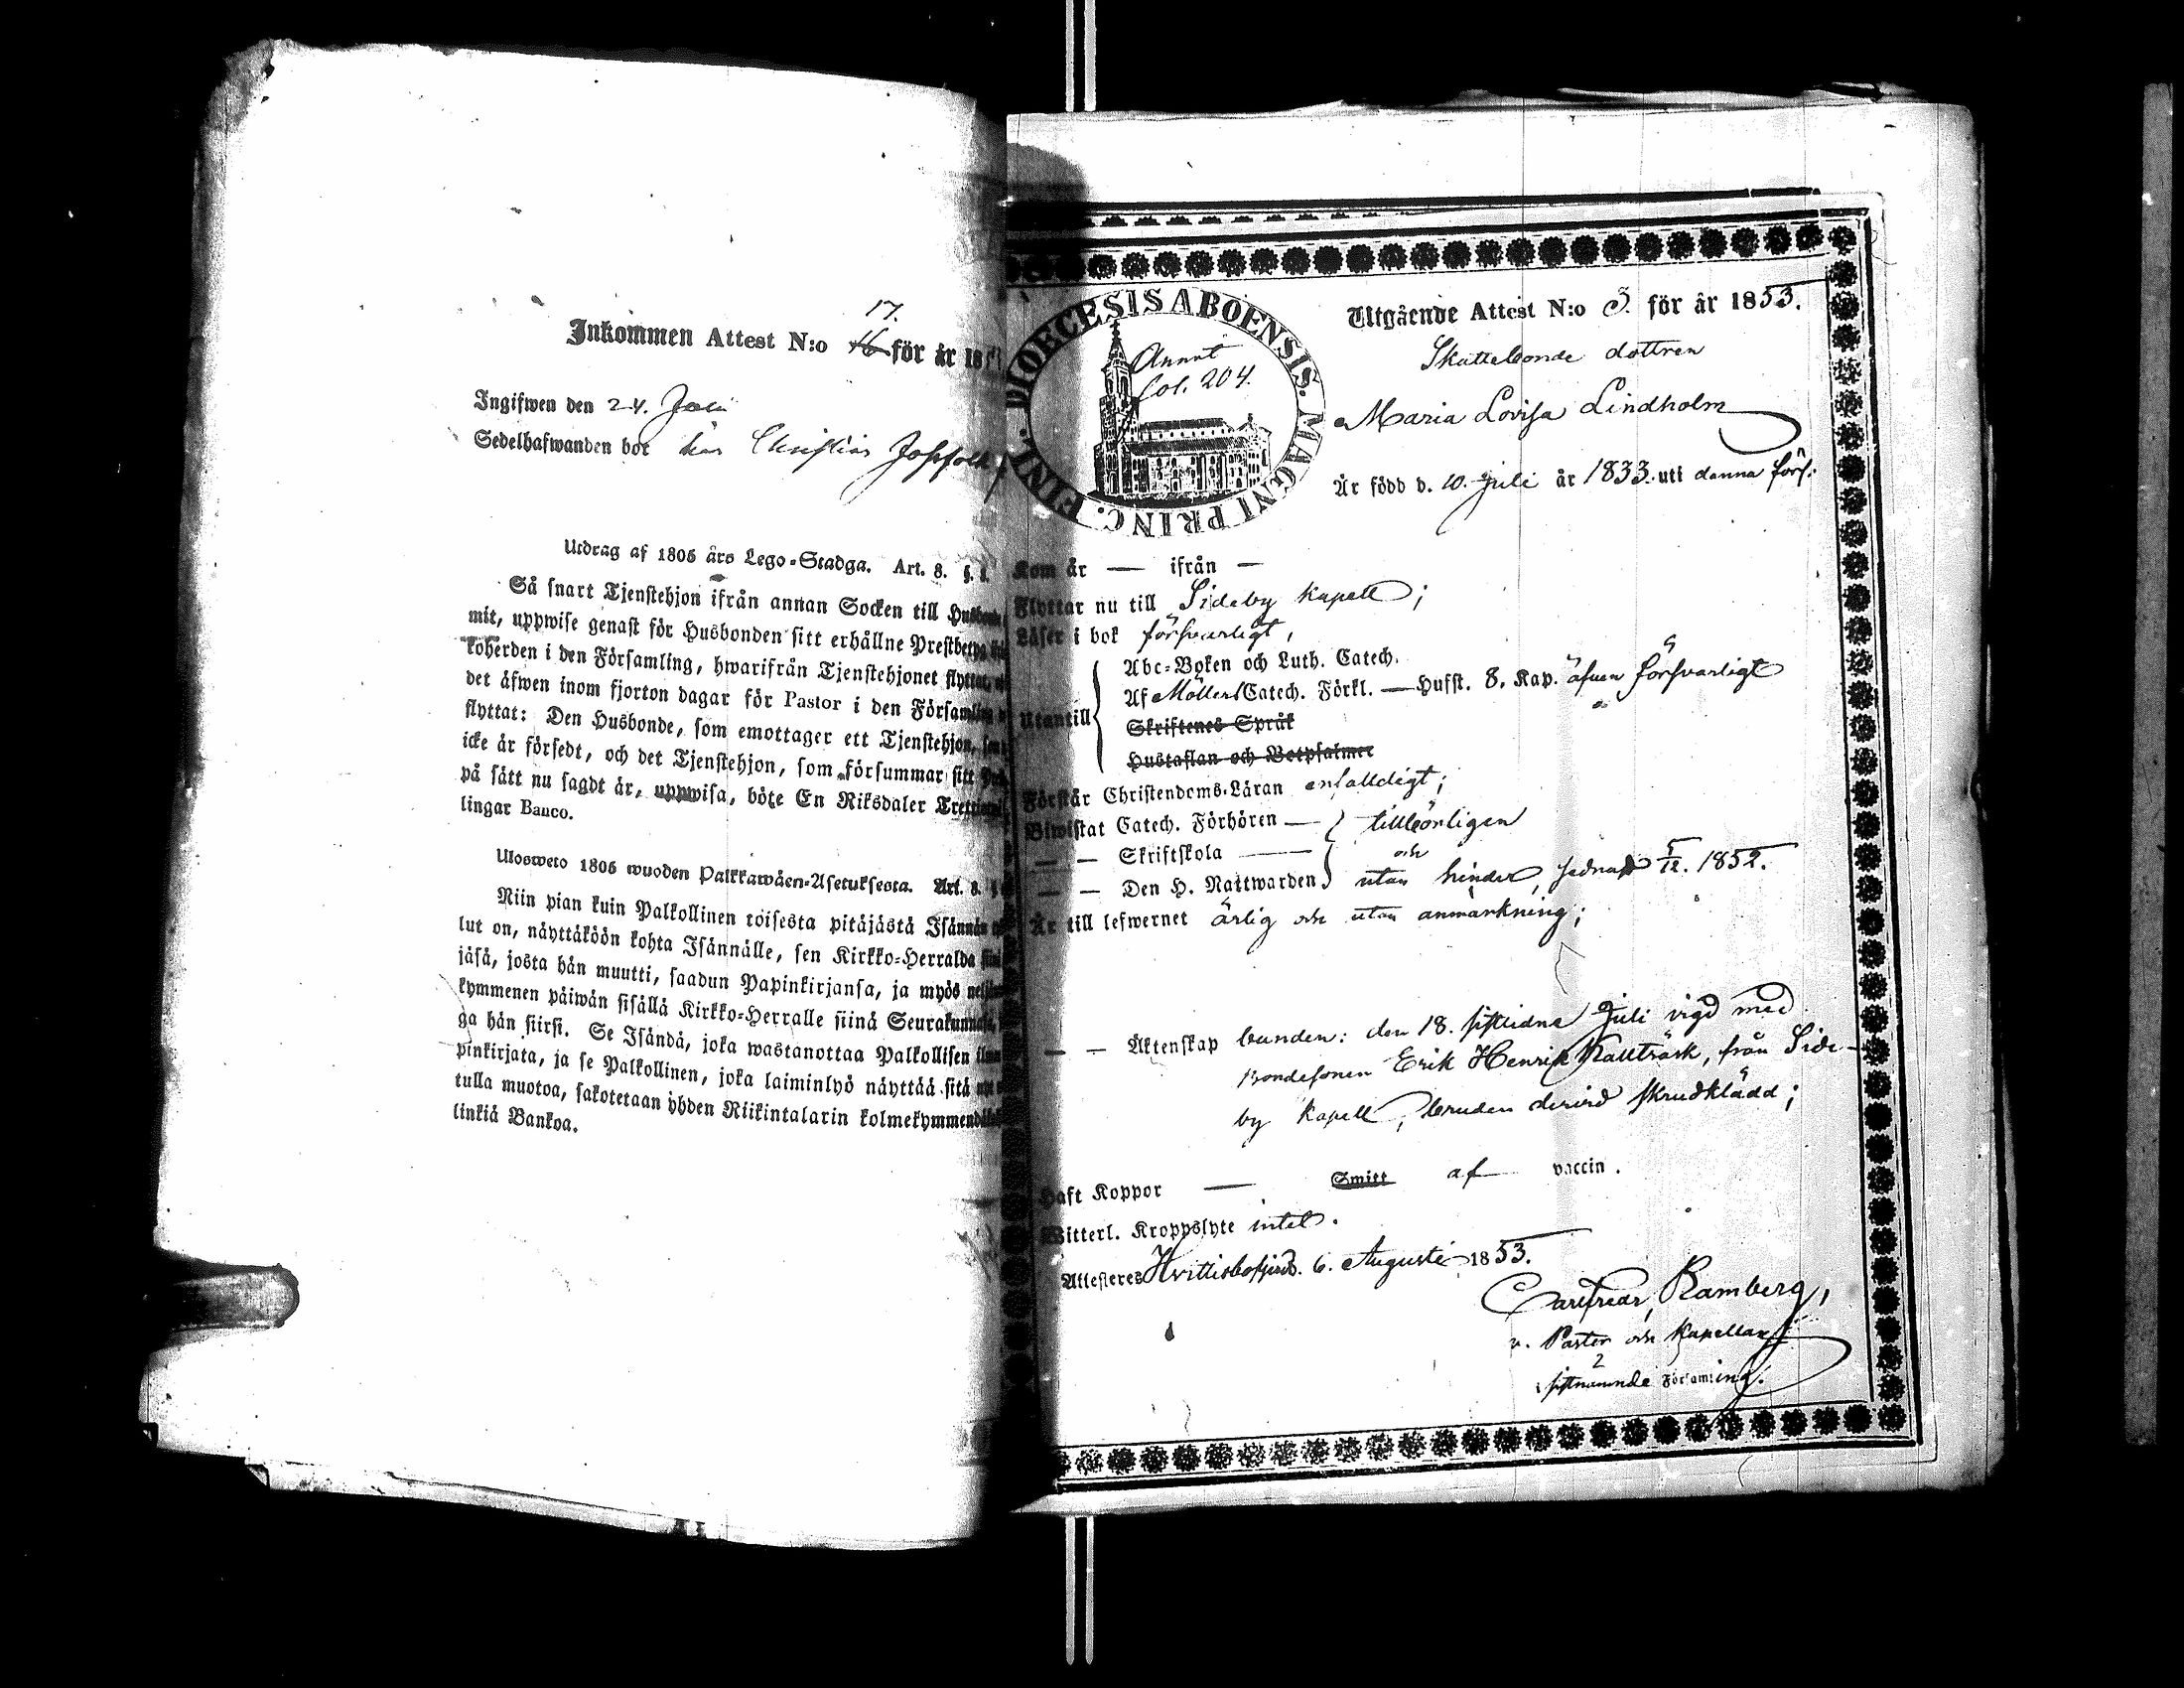 17.
Inkommen Attest N:o 16 för år 18
Ingifwen den 24.
Sedelhafwanden bor hos Christian
Utdrag af 1805 års Lego-Stadga. Art. 8. §.
Så snart Tjenstehjon ifrån annan Socken till
mit, uppwise genast för Husbonden sitt erhållne
koherden i den Församling, hwarifrån Tjenstehjonet
det äfwen inom fjorton dagar för Pastor i den
flyttat: Den Husbonde, som emottager ett Tjenstehjon,
icke är försedt, och det Tjenstehjon, som försummar sitt
på sätt nu sagdt är, uppwisa, böte En Riksdaler
lingar Banco.
Ulosweto 1805 wuoden Palkkawäen-Asetuksesta. Art. 8.
Niin pian kuin Palkollinen toisesta pitäjästä Isännän
lut on, näyttäköön kohta Isännälle, sen Kirkko-Herralda
jäsä, josta hän muutti, saadun Papinkirjansa, ja myös
kymmenen päiwän sisällä Kirkko-Herralle siinä
ga hän siirsi. Se Isändä, joka wastanottaa Palkollisen
pinkirjata, ja se Palkollinen, joka laiminlyö näyttää sitä
tulla muotoa, sakotetaan yhden Riikintalarin
linkiä Bankoa.
DIOECESIS ABOENSIS. MAGNI PRINC. FINL.
Annot
fol. 204.
Utgående Attest N:o 3. för år 1853.
Skattebonde dottren
Maria Lovisa Lindholm
Är född d. 10. Juli år 1833. uti denna förs.
Kom år — ifrån —
Flyttar nu till Sideby Kapell;
Läser i bok försvarligt,
Abc-Boken och Luth. Catech.
Af Möllers Catech. Förkl. — Husst. 8. Kap. äfven försvarligt
Utantill
Skriftenes Språk
Hustaflan och Botpsalmer
Förstår Christendoms-Läran enfalldigt;
Biwistat Catech. Förhören — tillbörligen
— — Skriftskola — och
— — Den H. Nattwarden utan hinder, sednast 5/12. 1852.
Är till lefwernet ärlig och utan anmärkning;
— — Äktenskap bunden: den 18. sistlidne Juli vigd med
Bondesonen Erik Henrik Kallträsk, från Side-
by Kapell, bruden dervid skrudklädd;
Haft Koppor — Smitt af vaccin.
Witterl. Kroppslyte intet.
Attesteres Hvittisbofjärd. 6. Augusti 1853.
Carl Fredr. Ramberg,
v. Pastor och Kapellan i
sistnämnde Församling.